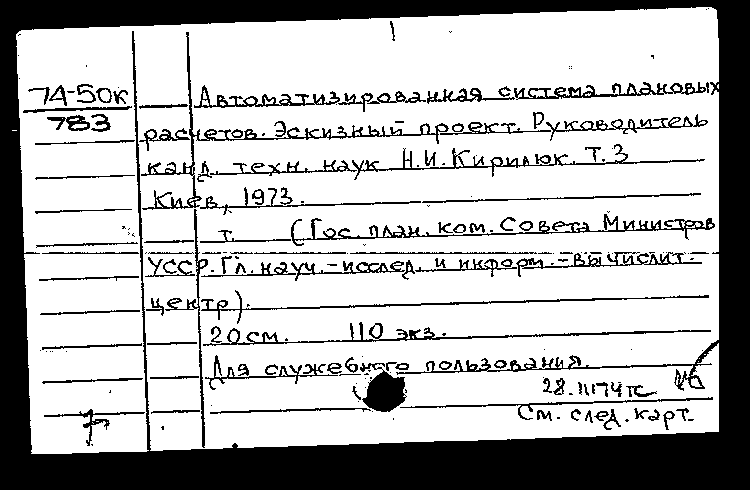 74-50к
783
Автоматизированная система плановых
расчетов. Эскизный проект. Руководитель
канд. техн. наук Н.И.Кирилюк. Т.3
Киев, 1973.
т. (Гос. план. ком. Совета Министров
УССР. Гл. науч.-исслед. и информ.-вычислит.
центр).
20см. 110 экз.
Для служебного пользования.
28.III74тс
См. след. карт.